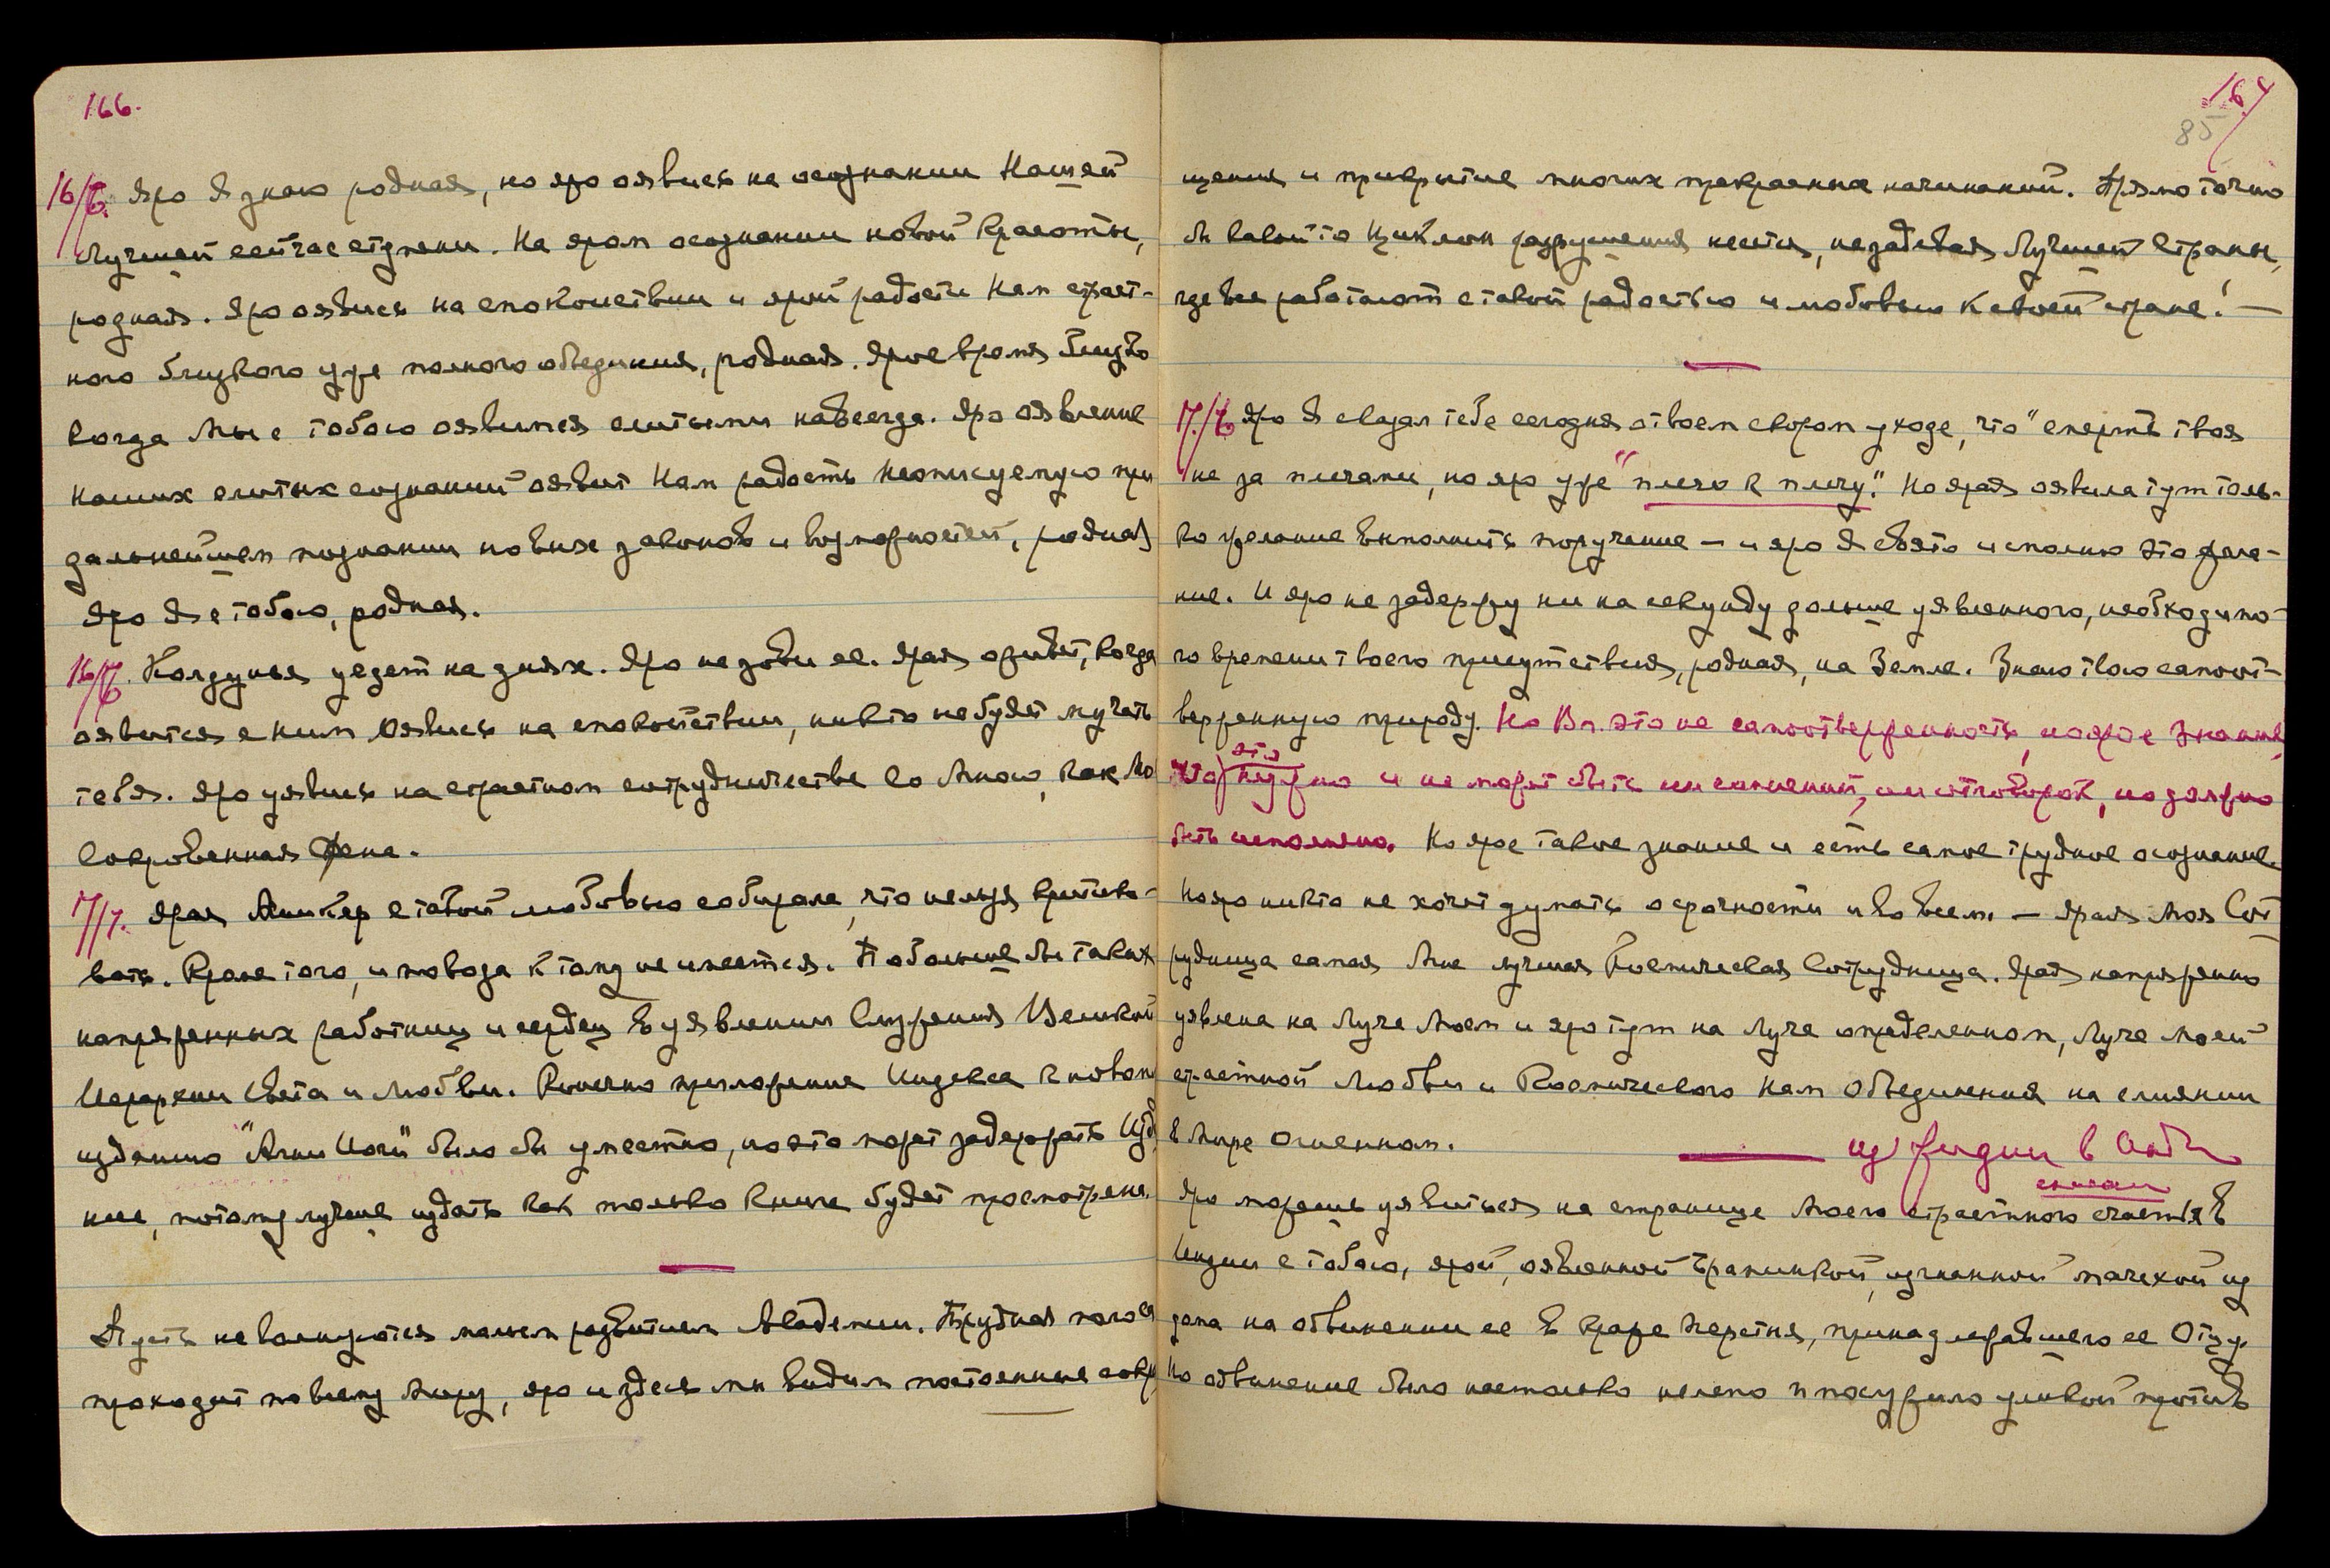 166.
16/7. Яро Я знаю родная, но яро оявись на осознании Нашей
Лучшей сейчас ступени. На яром осознании новой Красоты,
родная. Яро оявись на спокойствии и ярой радости Нам страст-
ного близкого уже полного объединия, родная. Ярое время близко
когда Мы с тобою оявимся слитыми навсегда. Яро оявление
наших слитых сознаний оявит Нам радость неописуемую при
дальнейшем познании новых законов и возможностей, родная
Яро Я с тобою, родная.
16/7. Колдунья уедет на днях. Яро не зови ее. Ярая оживет, когда
оявится с ним Оявись на спокойствии, никто не будет мучать
тебя. Яро уявись на страстном сотрудничестве со Мною, как Мо
сокровенная Жена.
17/7. Ярая с такой любовью собирала, что нельзя критико-
вать. Кроме того, и повода к тому не имеется. Побольше бы таких
напряженных работниц и сердец в уявлении Служения Великой
Иерархии Света и Любви. Конечно приложение Индекса к новому
изданию "Агни Йоги" было бы уместно, но это может задержать Изд
ние, потому лучше издать как только книга будет просмотрена.
Пусть не волнуются малым развитием Академии. Трудная полоса
проходит по всему Миру, яро и здесь мы видим постоянные сокр
167
85
щения и прикрытие многих прекрасных начинаний. Прямо точно
бы какой то Циклон разрушения несется, не задевая Лучшей Страны,
где все работают с такой радостью и любовью к своей стране! —
17/7 Яро Я сказал тебе сегодня о твоем скором уходе, что "смерть твоя
не за плечами, но яро уже "плечо к плечу". Но ярая оявила тут толь-
ко желание выполнить поручение — и яро Я свято исполню это жела-
ние. И яро не задержу ни на секунду дольше уявленного, необходимо-
го времени твоего присутствия, родная, на Земле. Знаю твою самоот-
верженную природу. Но Вл. это не самоотверженность, но ярое знание,
что это нужно и не может быть ни сомнений, ни отговорок, но должно
быть исполнено. Но ярое такое знание и есть самое трудное осознание.
Но яро никто не хочет думать о срочности и во всем. — Ярая Моя Сот
рудница самая Мне лучшая Космическая Сотрудница. Ярая напряженно
уявлена на Луче Моем и яро тут на Луче определенном, Луче Моей
страстной Любви и Космического Нам Объединения на слиянии
в Мире Огненном.
из жизни в
списан
Яро можешь уявиться на странице Моего страстного счастья в
Индии с тобою, ярой, оявленной браминкой, изгнанной мачехой из
дома на обвинении ее в краже перстня, принадлежавшего ее Отцу.
Но обвинение было настолько нелепо и послужило уликой против